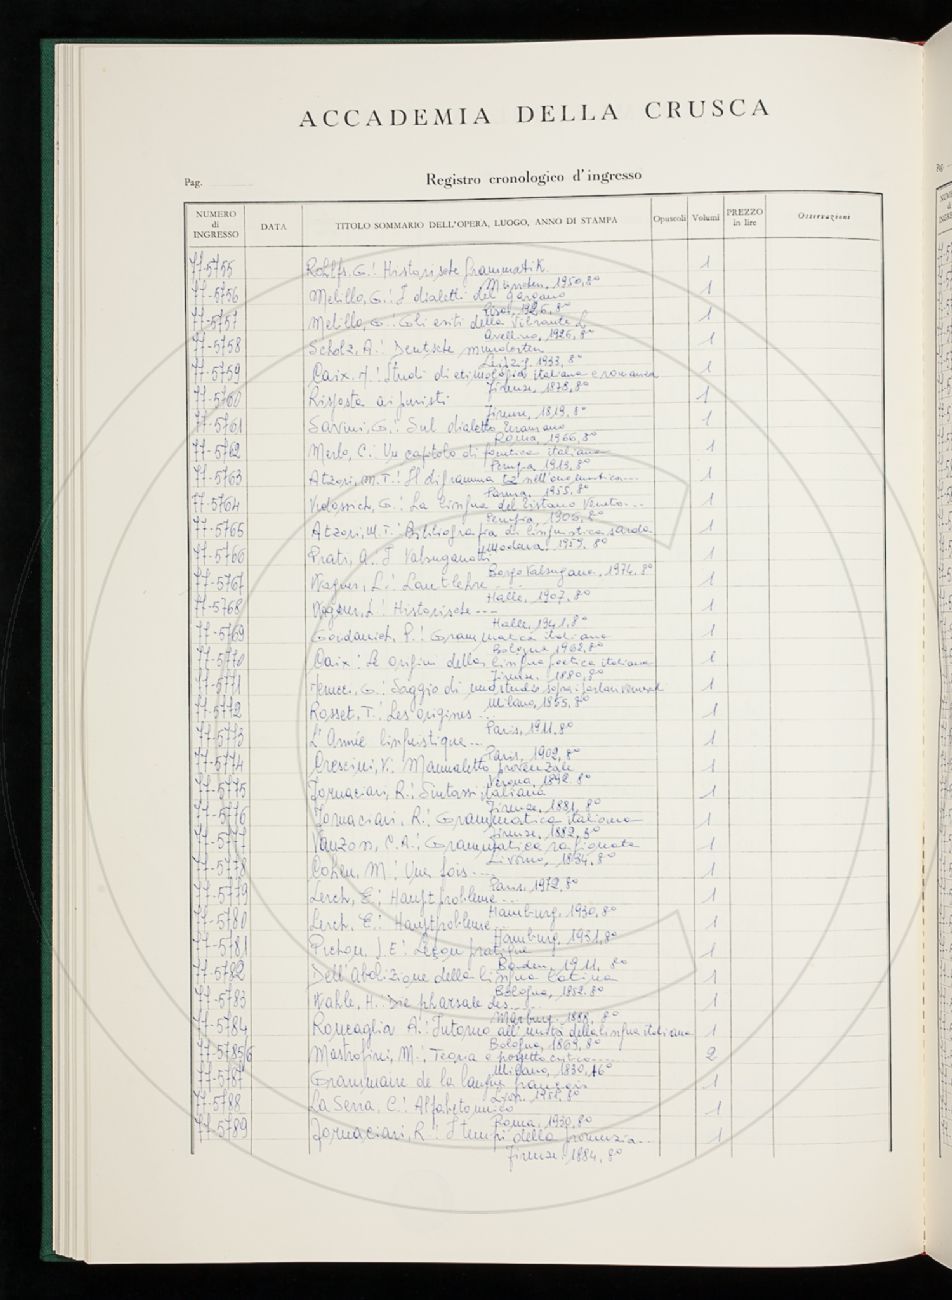 ACCADEMIA DELLA CRUSCA
Pag.
Registro cronologico d'ingresso
NUMERO di INGRESSO DATA TITOLO SOMMARIO DELL'OPERA, LUOGO, ANNO DI STAMPA Opuscoli Volumi PREZZO in lire Osservazioni
77-5755 Rohlfs. G.: Historische Grammatik. 1
München, 1950, 8°
77-5756 Melillo, G.: I dialetti del Gargano 1
Pisa, 1926, 8°
77-5757 Melillo, G.: Gli esiti della vibrante L 1
Avellino, 1926, 8°
77-5758 Scholz, A.: Deutsche mundarten 1
Leipzig, 1933, 8°
77-5759 Caix. : Studi di etimologia italiana e romanza 1
Firenze, 1878, 8°
77-5760 Risposta ai puristi 1
Firenze, 1819, 8°
77-5761 Savini, G.: Sul dialetto teramano 1
Roma, 1966, 8°
77-5762 Merlo, C.: Un capitolo di fonetica italiana 1
Perugia 1919, 8°
77-5763 Atzori, M.T.: Il digramma nell' 1
Parma, 1955, 8°
77-5764 Vidossich, G.: La lingua del tristano Veneto... 1
Perugia, 1906, 8°
77-5765 Atzori, M.T.: Bibliografia di linguistica sarda 1
Modena, 1959, 8°
77-5766 Prati, A. I Valsuganotti 1
Borgo Valsugana, 1974, 8°
77-5767 Wagner, L.: Lautlehre 1
Halle, 1907, 8°
77-5768 Wagner, L.: Historische --- 1
Halle, 1941, 8°
77-5769 Goidanich, P.: Grammatica italiana 1
Bologna 1962, 8°
77-5770 Caix: Le origini della lingua poetica italiana 1
Firenze, 1880, 8°
77-5771 G.: Saggio di uno studio sopra i parlari vernacoli 1
Milano, 1855, 8°
77-5772 Rosset, T.: Les origines ... 1
Paris, 1911, 8°
77-5773 L'Année linguistique ... 1
Paris, 1902, 8°
77-5774 Crescini, V.: Manualetto provenzale 1
Verona, 1892, 8°
77-5775 Fornaciari, R.: Sintassi italiana 1
Firenze, 1881, 8°
77-5776 Fornaciari, R.: Grammatica italiana
Firenze, 1882, 8°
77-5777 Vanzon, C.A.: Grammatica ragionata 1
Livorno, 1834, 8°
77-5778 Cohen, M.: Une fois ... 1
Paris, 1972, 8°
77-5779 Lerch, E.: Hauptprobleme ... 1
Hamburg, 1930, 8°
77-5780 Lerch, E.: Hauptprobleme... 1
Hamburg, 1931, 8°
77-5781 Pichon, J.E.: Leçon pratique 1
1911, 8°
77-5782 Dell'Abolizione della lingua latina 1
Bologna, 1852, 8°
77-5783 Wahle, H.: Die pharsale des 1
Marburg, 1888, 8°
77-5784 Roncaglia A.: Intorno all'unità della lingua italiana 1
Bologna, 1869, 8°
77-5785/6 Mastrofini, M.: Teoria e prospetto critico ..... 2
Milano, 1830, 16°
77-5787 Grammaire de la langue française 1
Lyon, 8°
77-5788 La Serra, C.: Alfabeto unico 1
Roma, 1930, 8°
77-5789 Fornaciari, R.: I tempi della pronunzia ... 1
Firenze, 1884, 8°